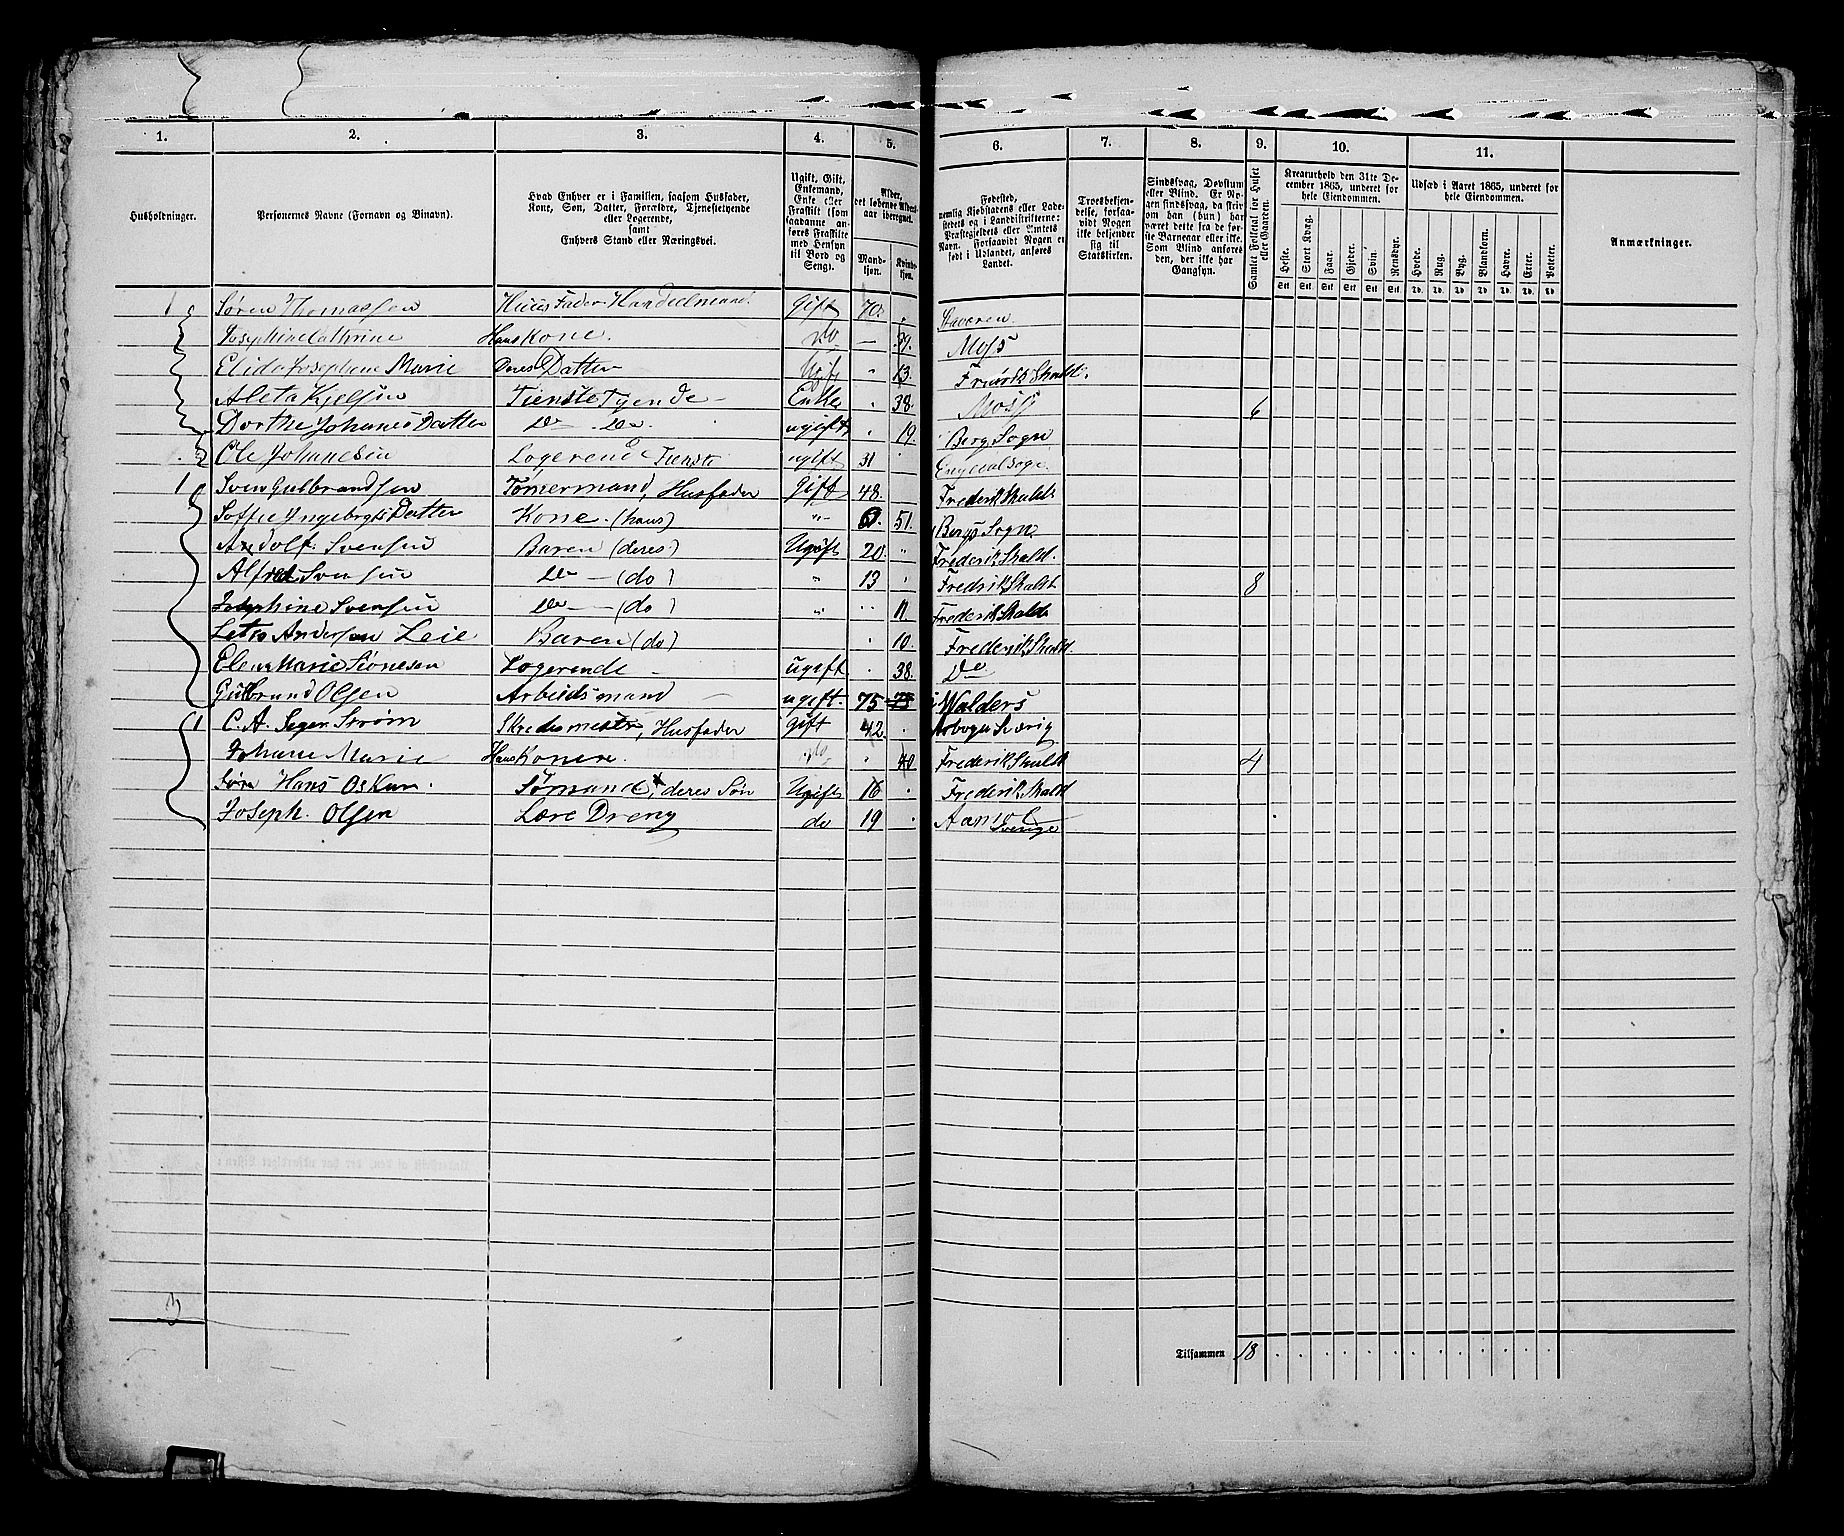 1. 2. 3. 4. 5. 6. 7. 8. 9. 10. 11.
Husholdninger.
Personernes Navne (Fornavn og Binavn).
Hvad Enhver er i Familien, saasom Husfader, Kone, Søn, Datter, Forældre, Tjenestetyende eller Logerende, samt Enhvers Stand eller Næringsvei.
Ugift, Gift, Enkemand, Enke eller Fraskilt (som saadanne anføres Fraskilte med Hensyn til Bord og Seng).
Alder, det løbende Aldersaar iberegnet.
Mandkjøn. Kvindekjøn.
Fødested, nemlig Kjøbstadens eller Ladestedets og i Landdistrikterne: Præstegjeldets eller Amtets Navn. Forsaavidt Nogen er født i Udlandet, anføres Landet.
Troesbekjendelse, forsaavidt Nogen ikke bekjender sig til Statskirken.
Sindssvag, Døvstum eller Blind. Er Nogen sindssvag, da skrives om han (hun) har været dette fra de første Barneaar eller ikke. Som Blind anføres den, der ikke har Gangsyn.
Samlet Folketal for Huset eller Gaarden.
Kreaturhold den 31te December 1865, underet for hele Eiendommen.
Heste. Stort Kvæg. Faar. Gjeder. Svin. Rensdyr.
Udsæd i Aaret 1865, underet for hele Eiendommen.
Hvede. Rug. Byg. Blandkorn. Havre. Erter. Poteter.
Anmærkninger.
1 Søren Thomassen Huus Fader Handelmand Gift 70 Staværen
Josephine Cathrine Hans Kone. Do — 39. Moss
Elida Josephine Marie Deres Datter Ugift 13. Fredrikshald.
Aleta Kjelsen TiensteTyende Enke 38. Moss 6
Dorthe Johanes Datter Do Do ugift 19. Berg Sogn
Ole Johanesen Logerende Tienste ugift 31
1 Sven Gulbrandsen Tømermand, Husfader Gift 48. Frederikshald
Soffie Ingebrgts Datter Kone (hans) " 51. Bergs Sogn
Andolf Svensen Baren (deres) Ugift 20 Frederikshald.
Alfred Svensen Do — (do) " 13 Fredrikshald 8
Josephine Svensen Do — (do) " 11 Frederikshald
Andersen Leie Baren (do) 10. Frederikshald
Elen Marie Logerende ugift 38. Do
Gulbrand Olsen Arbeidsmand ugift. 75 Walders
1 C. A. Seger Strøm Skredemester, Husfader gift 42
Johane Marie Hans Konen do 40 Frederikshald 4
Søn Hans Oskar. Sømand, deres Søn Ugift 16 Frederikshald
Joseph. Olsen Lære Dreng do 19 Sverige
3
Tilsammen 18